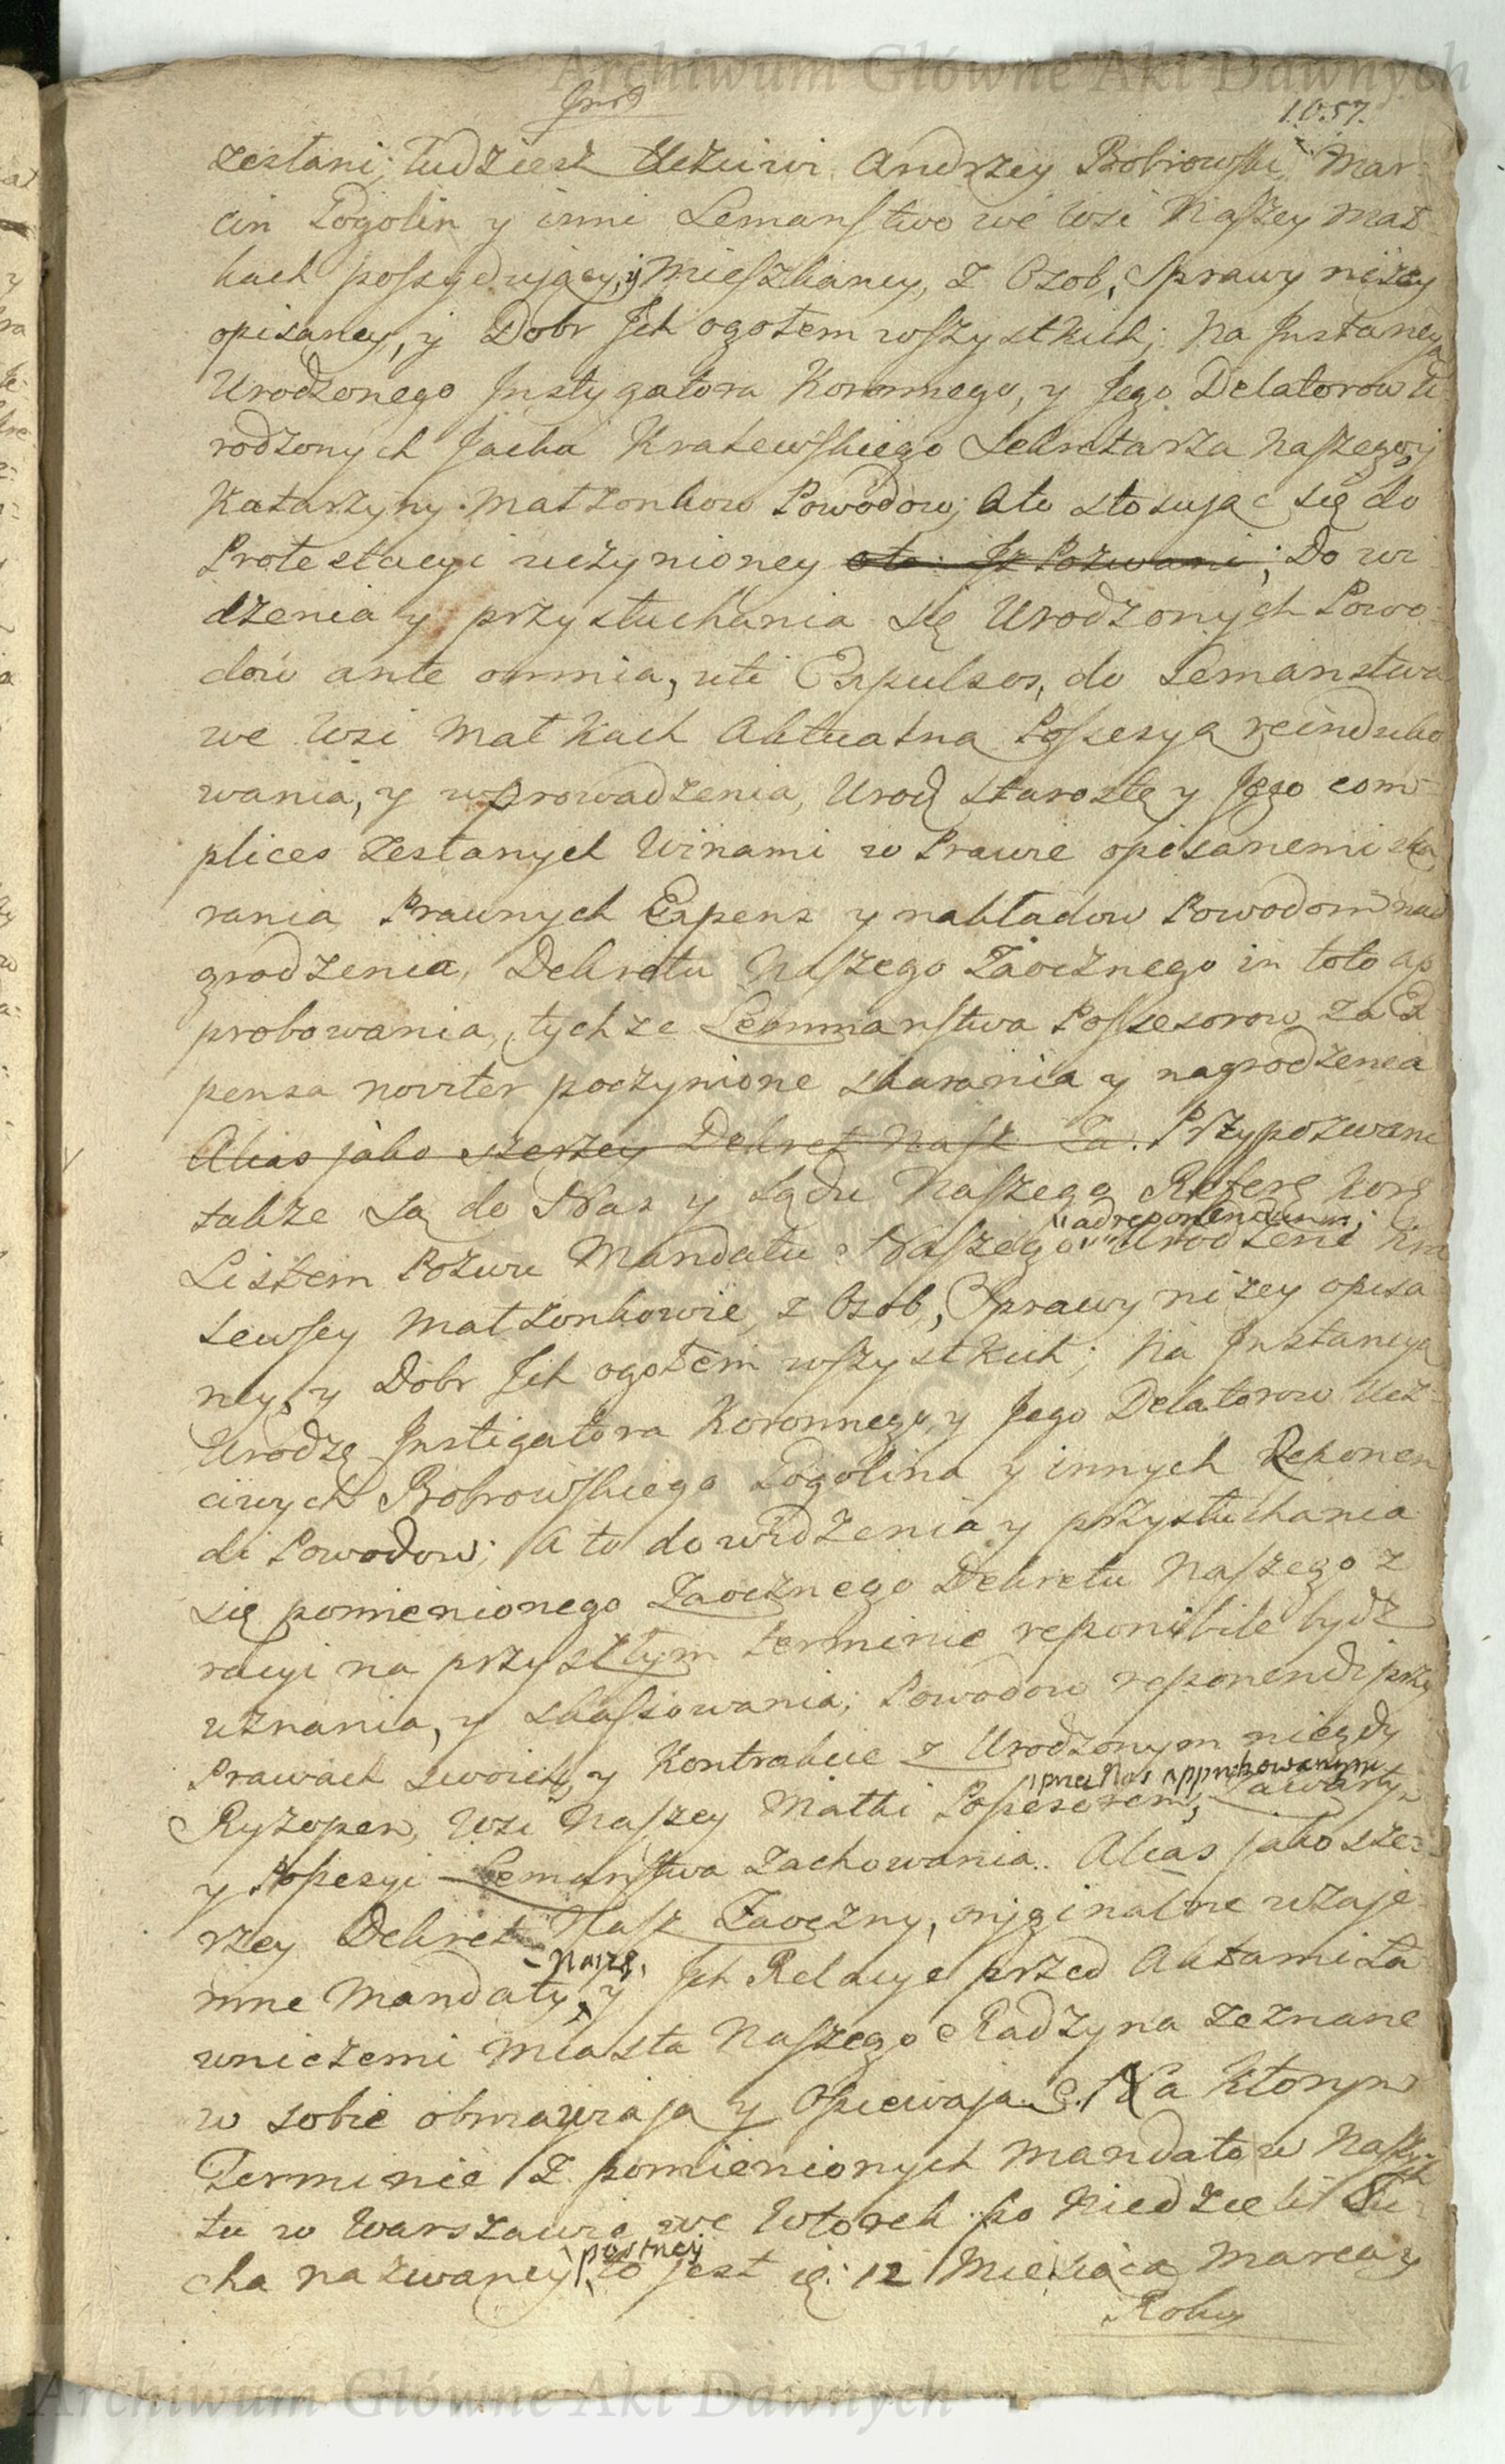 Archiwum Główne Akt Dawnych
1057.
zesłani; tudziesz Uczciwi Andrzey Bobrowski, Mar-
cin Pogolin y inni Lemaństwo we Wsi Naszey Mat-
kach possydujący, y Mieszkancy, z Osob, Sprawy niżey
opisaney, y Dobr Jch ogołem wszystkich; Na Jnstancyą
Urodzonego Jnstygatora Koronnego, y Jego Delatorow U-
rodzonych Jacka Krasewskiego Sekretarza Naszego, y
Katarzyny Małżonkow Powodow; A to stosując się do
Protestacyi uczynioney ato: Jż Pozwani; Do wi-
dzenia y przysłuchania się Urodzonych Powo-
dow ante omnia, uti Expulsos, do Lemanstwa
we Wsi Matkach Aktualną Possesyą reinduko-
wania, y wprowadzenia, Urodz Starostę y Jego com-
plices zesłanych Winami w Prawie opisanemi ska-
rania Prawnych Expens y nakładow Powodom nad-
grodzenia, Dekretu Naszego Zaocznego in toto ap-
probowania, tychże Lemmanstwa Possesorow za Ex-
pensa noviter poczynione skarania y nagrodzenia
Alias jako szerzey Dekret Nasz Za. Przypozwani
także są do Nas y Sądu Naszego Refer. Kor.
Listem Pozwu Mandatu Naszego "ad reponendum" Urodzeni Kra-
sewscy Małżonkowie, z Osob, Sprawy niżey opisa-
ney, y Dobr Jch ogołem wszystkich; Na Jnstancyą
Urodz. Jnstigatora Koronnego, y Jego Delatorow Ucz-
ciwych Bobrowskiego Pogolina y innych Reponen-
di Powodow; A to do widzenia y przysłuchania
się pomienionego Zaocznego Dekretu Naszego z
racyi na przyszłym terminie reponibile bydz
uznania, y skassowania; Powodow reponendi przy
Prawach swoich, y Kontrakcie z Urodzonym niegdy
Ryzopen, Wsi Naszey Matki Possesorem, przez Nas approbowanym zawartym
y Possesyi Lemaństwa zachowania. Alias jako sze-
rzey Dekret Nasz Zaoczny, oryginalne wzaje-
mne Mandaty Nasze, y Jch Relacye przed Aktami Ła-
wniczemi Miasta Naszego Radzyna zeznane
w sobie obmawiają y Opiewają. Na Ktorym
Terminie z pomienionych Mandatow Naszych
tu w Warszawie we Wtorek po Niedzieli Su-
cha nazwaney postney to jest d: 12 Miesiąca Marca y
Roku
Archiwum Główne Akt Dawnych